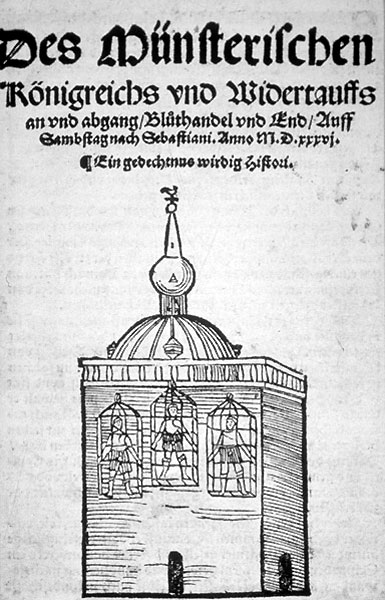 Des Münsterischen
Königreichs vnd Widertauffs
an vnd abgang/Blůthandel vnd End/Auff
Sambstag nach Sebastiani. Anno M.D.xxxvj.
¶ Ein gedechtnus wirdig Histori.